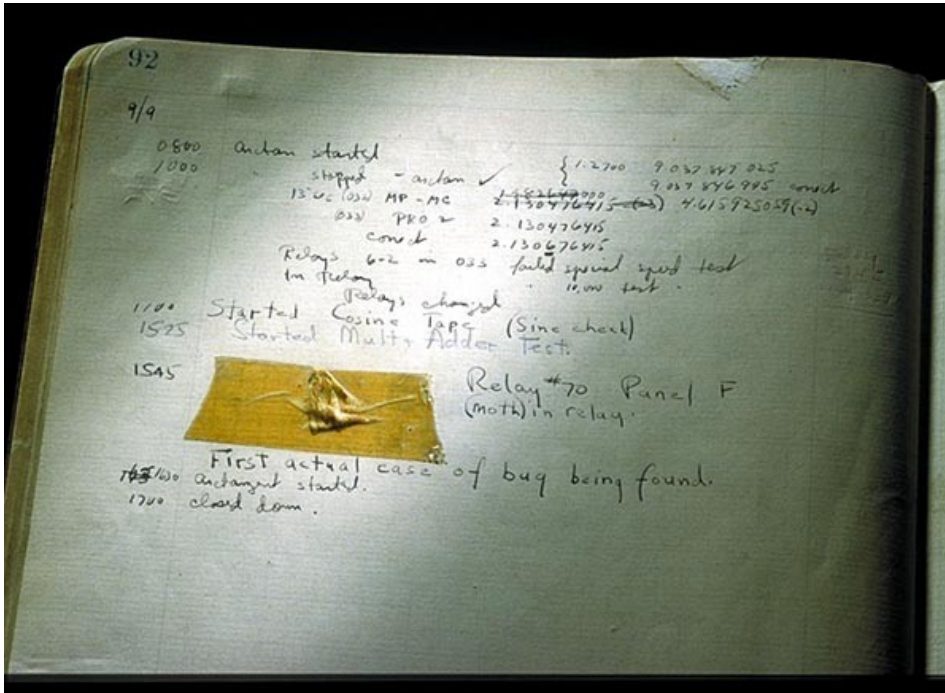 92
9/9
0800 antan started
1000 stopped - antan ✓ { 1.2700 9.037 847 025
9.037 846 995 conect
13" uc (032) MP - MC 2.130476415 (-3) 4.615925059(-2)
(033) PRO 2 2.130476415
conect 2.130676415
Relays 6-2 in 033 failed special speed test
In Relay " 10,000 test .
Relays changed
1100 Started Cosine Tape (Sine check)
1525 Started Mult + Adder Test.
1545 Relay #70 Panel F
(moth) in relay.
First actual case of bug being found.
1630 antangent started.
1700 closed down .